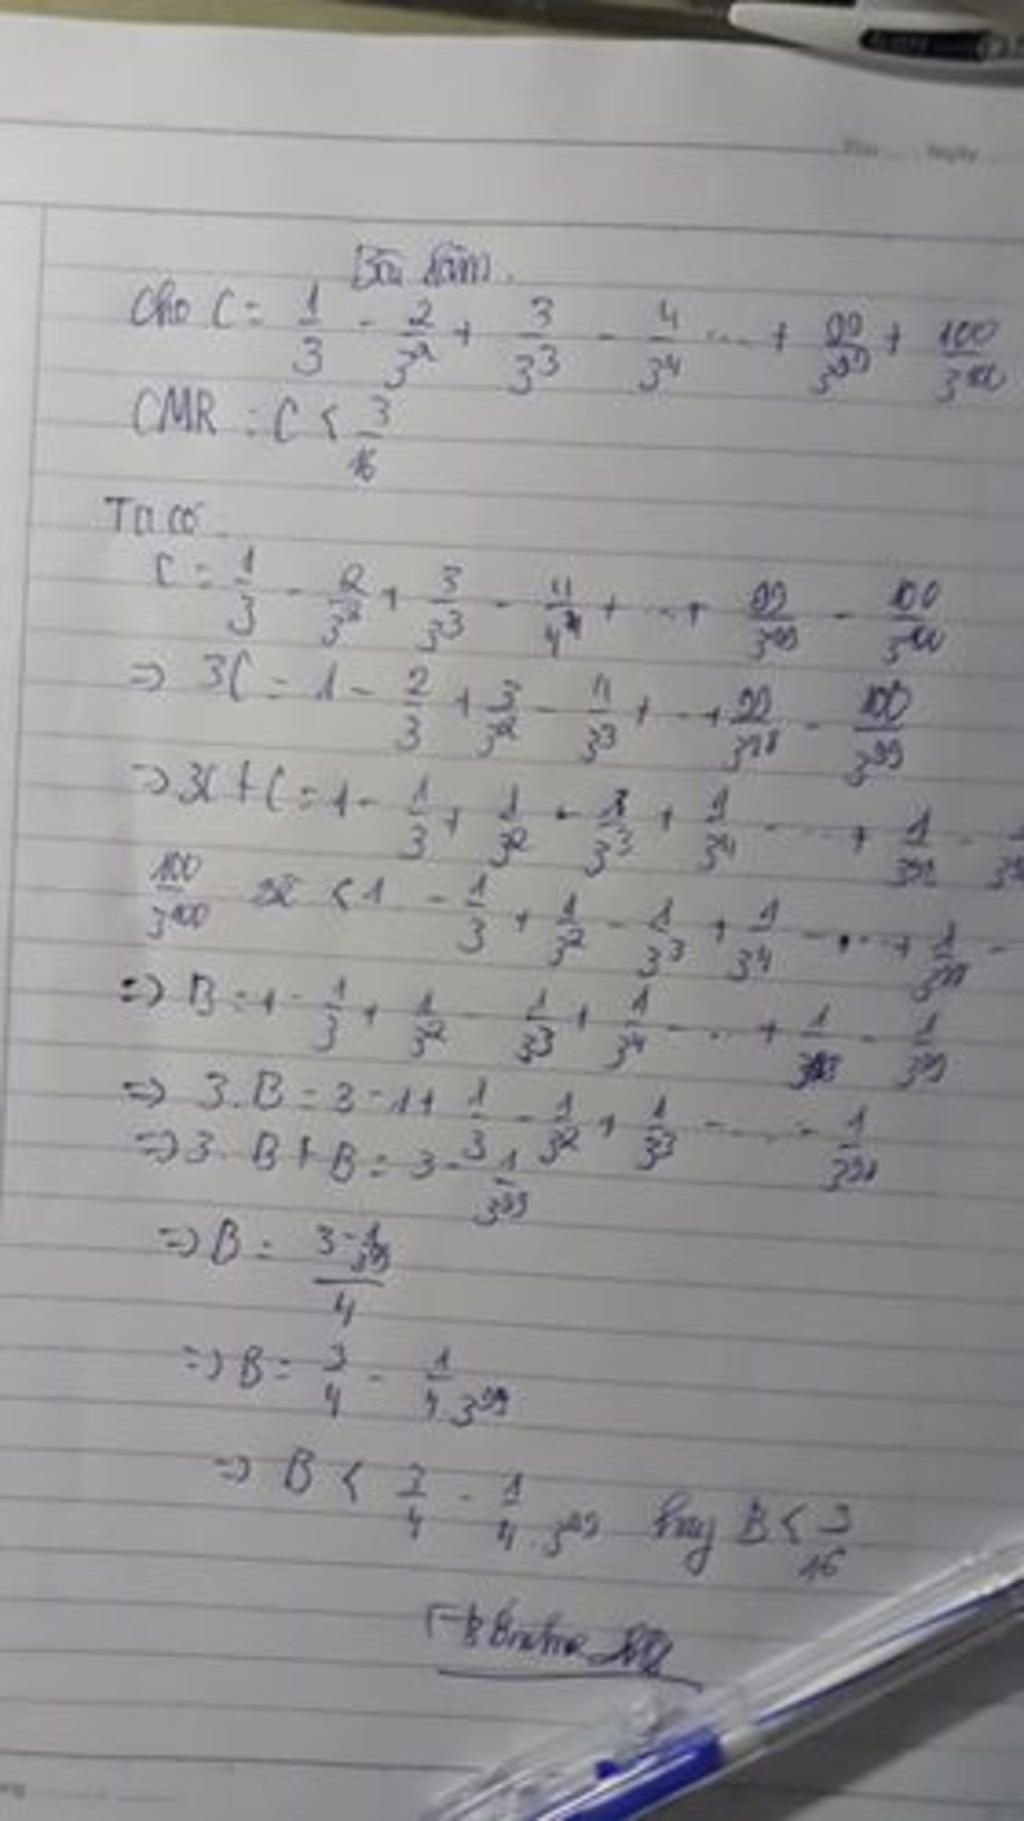 Bài làm.
Cho C = 1/3 - 2/3^2 + 3/3^3 - 4/3^4 ... + 99/3^99 + 100/3^100
CMR : C < 3/16
Ta có
C = 1/3 - 2/3^2 + 3/3^3 - 4/4^4 + ... + 99/3^99 - 100/3^100
=> 3C = 1 - 2/3 + 3/3^2 - 4/3^3 + ... + 99/3^98 - 100/3^99
=> 3C + C = 1 - 1/3 + 1/3^2 - 1/3^3 + 1/3^4 - ... + 1
100/3^100 < 1 - 1/3 + 1/3^2 - 1/3^3 + 1/3^4 - ... + 1
=> B = 1 - 1/3 + 1/3^2 - 1/3^3 + 1/3^4 - ... + 1 - 1/3^99
=> 3.B = 3 - 1 + 1/3 - 1/3^2 + 1/3^3 - ... - 1/3^98
=> 3. B + B = 3 - 1/3^99
=> B = 3 - 1/3^99 / 4
=> B = 3/4 - 1/4.3^99
=> B < 3/4 - 1/4.3^99 hay B < 3/16